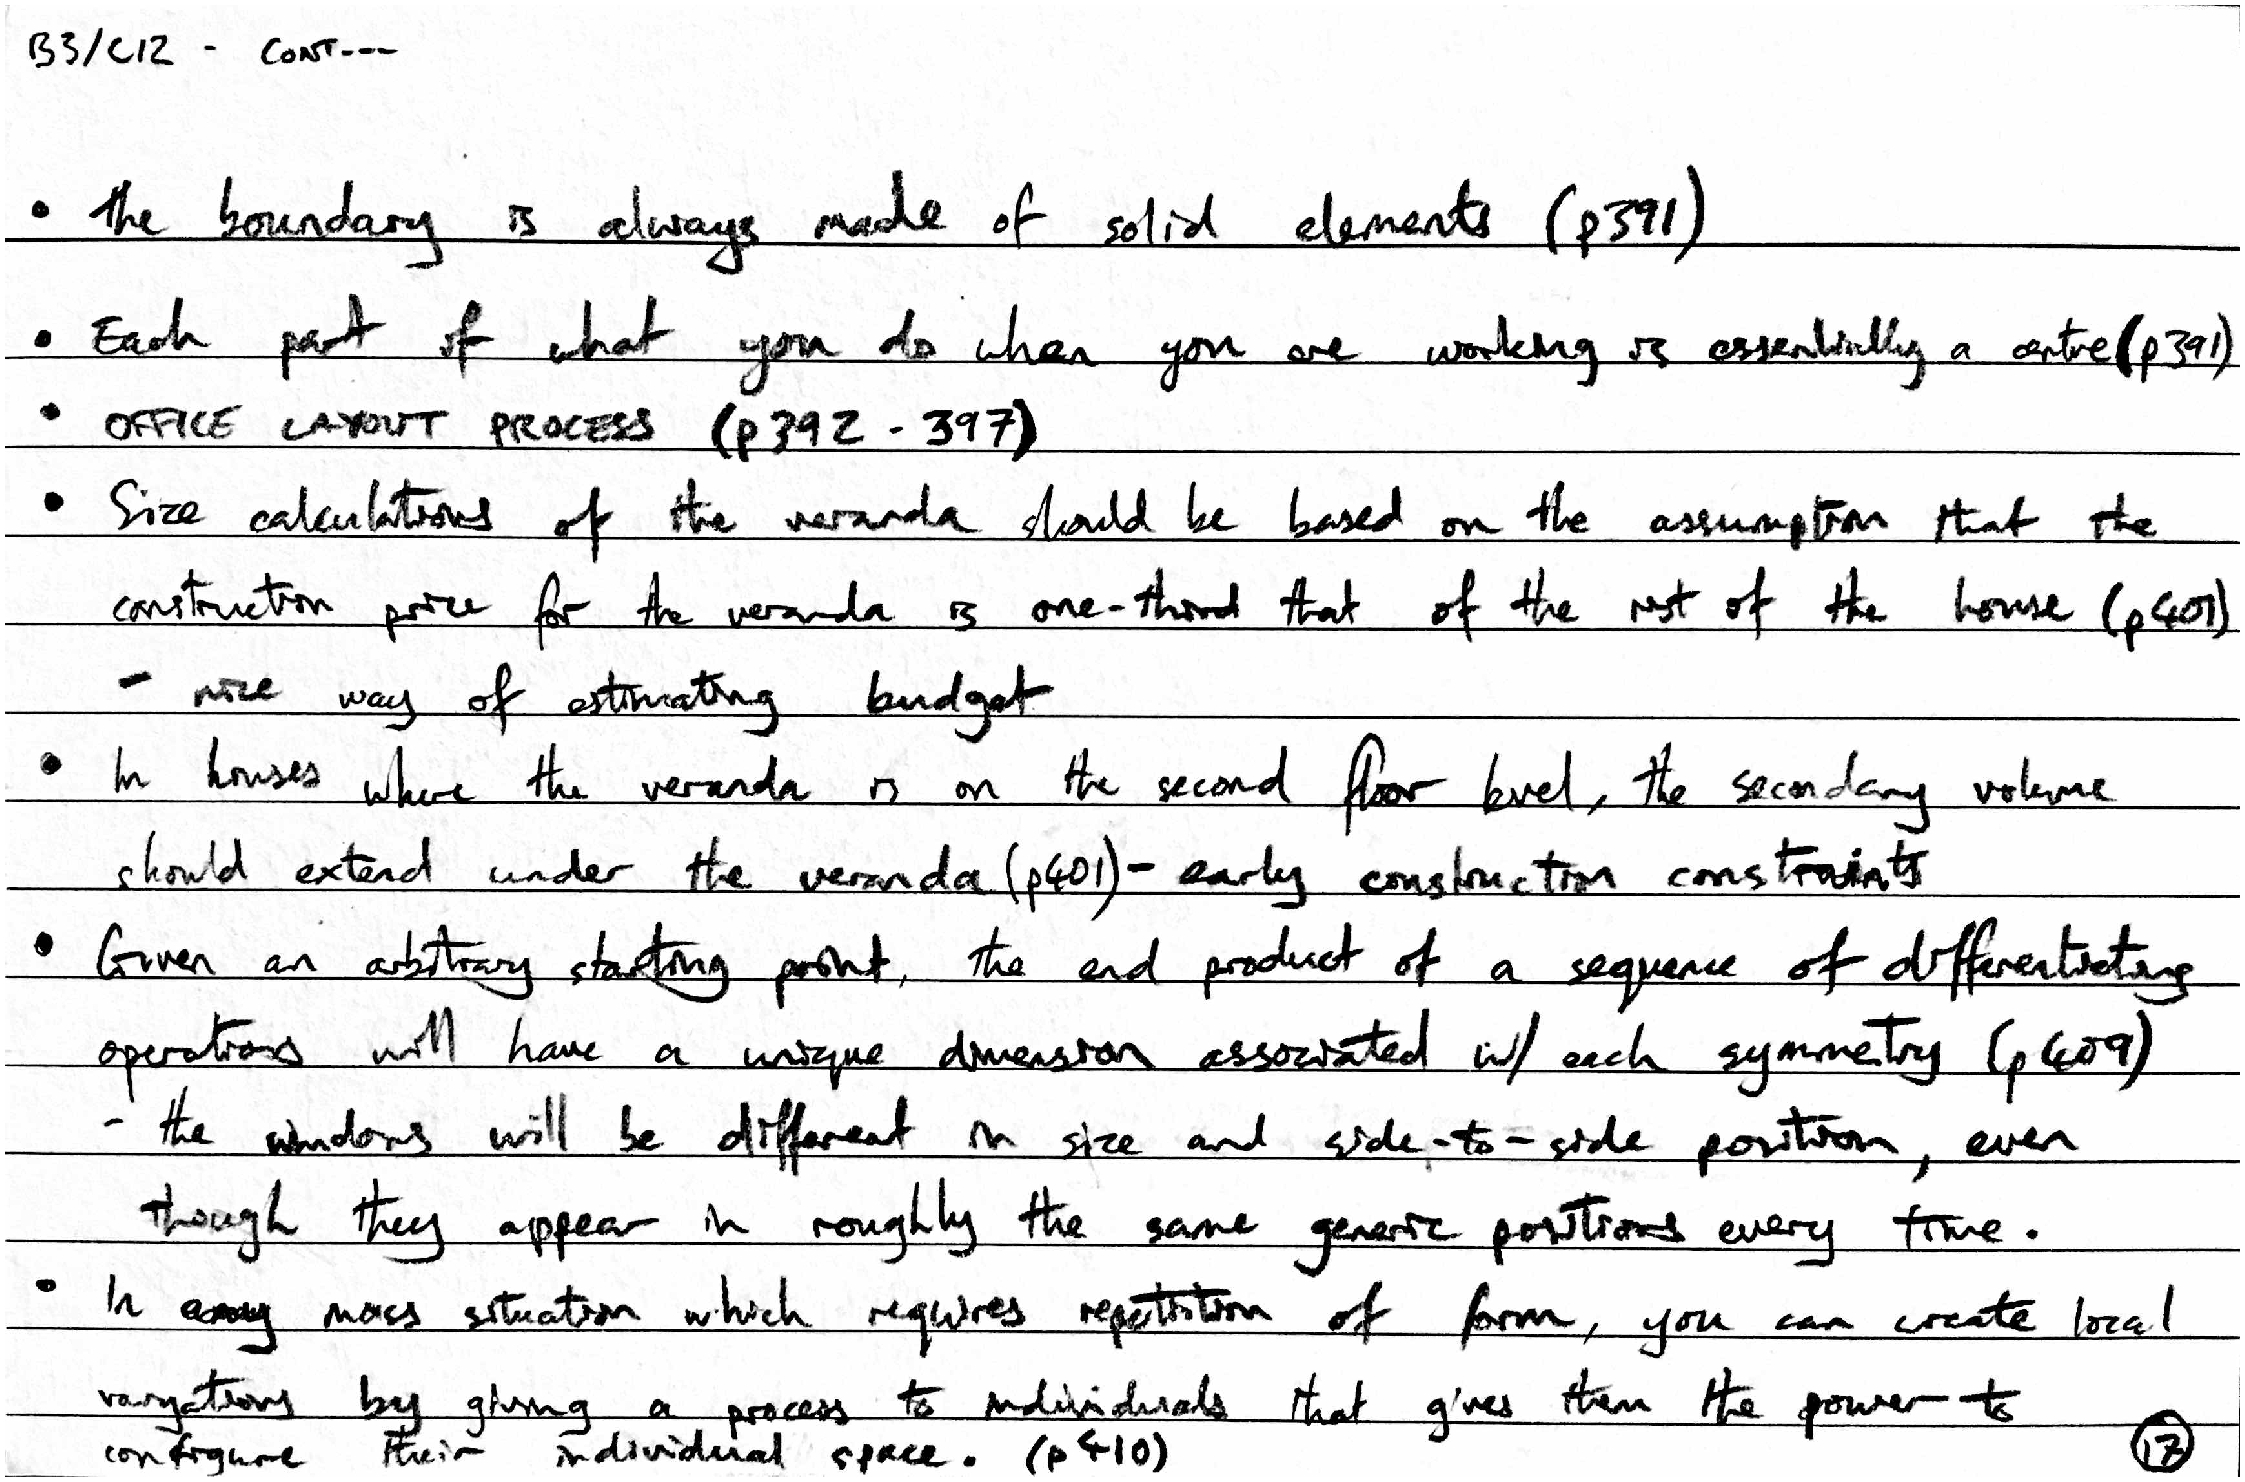 B3/C12 - CONT---
• the boundary is always made of solid elements (p391)
• Each part of what you do when you are working is essentially a centre (p391)
• OFFICE LAYOUT PROCESS (p392 - 397)
• Size calculations of the veranda should be based on the assumption that the
construction price for the veranda is one-third that of the rest of the house (p401)
- nice way of estimating budget
• In houses where the veranda is on the second floor level, the secondary volume
should extend under the veranda (p401) - early construction constraints
• Given an arbitrary starting point, the end product of a sequence of differentiating
operations will have a unique dimension associated w/ each symmetry (p409)
- the windows will be different in size and side-to-side position, even
though they appear in roughly the same generic positions every time.
• In any mass situation which requires repetition of form, you can create local
varyations by giving a process to individuals that gives them the power to
configure their individual space. (p410)
17